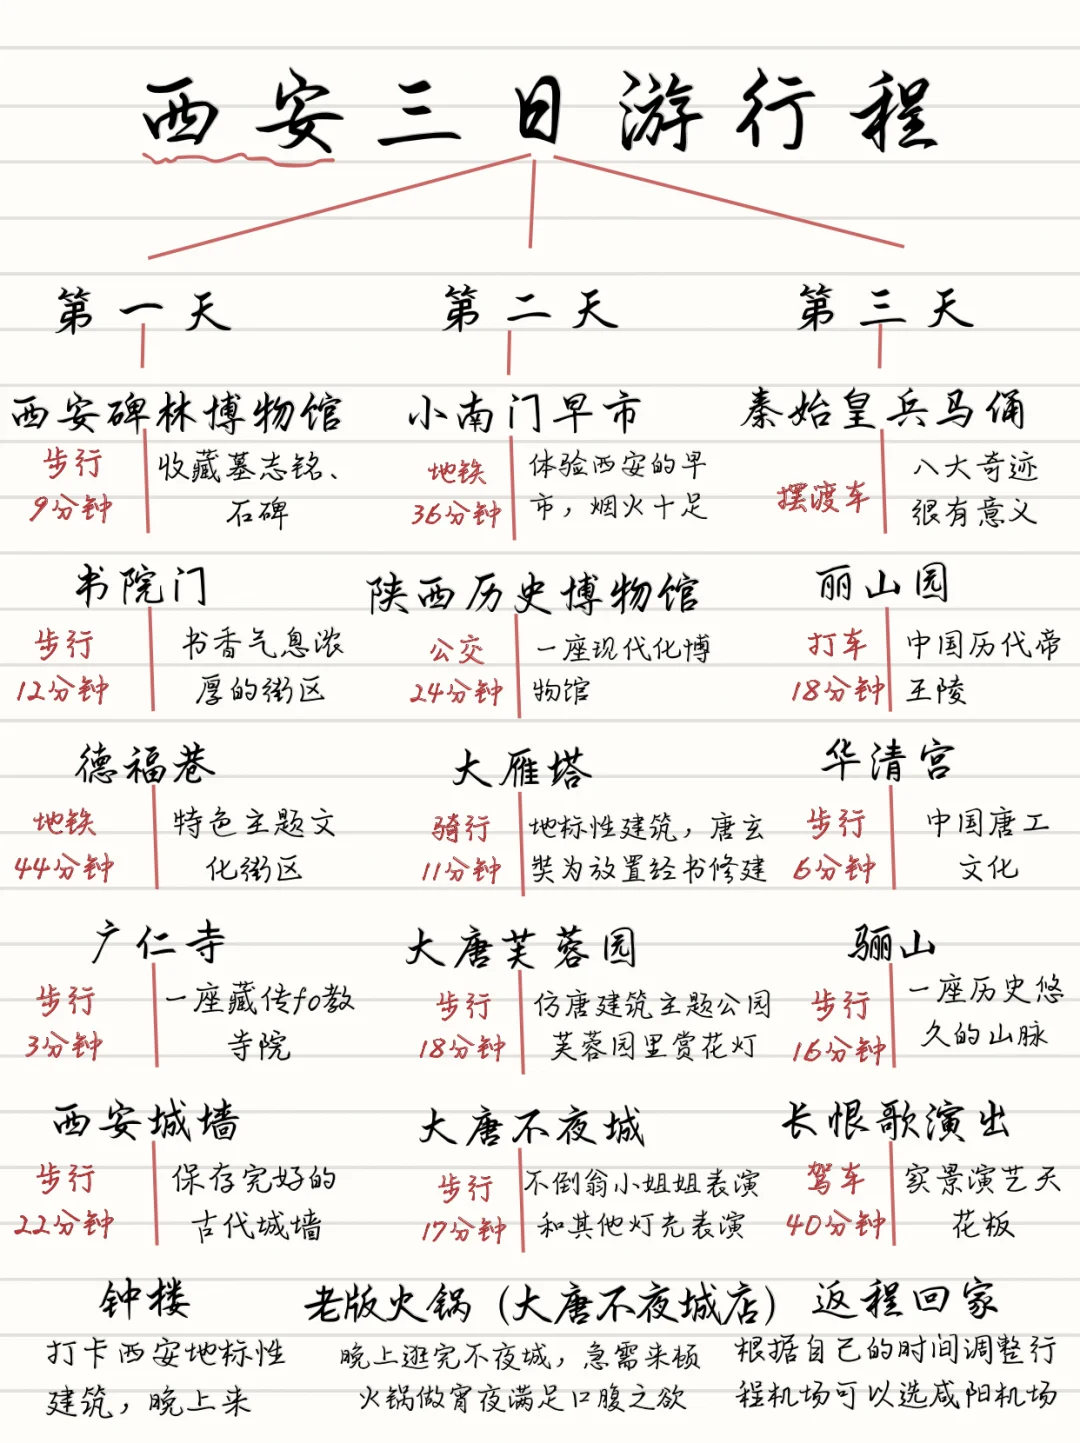 西安三日游行程
第一天
西安碑林博物馆
步行
9分钟
收藏墓志铭、
石碑
书院门
步行
12分钟
书香气息浓
厚的街区
德福巷
地铁
44分钟
特色主题文
化街区
广仁寺
步行
3分钟
一座藏传fo教
寺院
西安城墙
步行
22分钟
保存完好的
古代城墙
钟楼
打卡西安地标性
建筑，晚上来
第二天
小南门早市
地铁
36分钟
体验西安的早
市，烟火十足
陕西历史博物馆
公交
24分钟
一座现代化博
物馆
大雁塔
骑行
11分钟
地标性建筑，唐玄
奘为放置经书修建
大唐芙蓉园
步行
18分钟
仿唐建筑主题公园
芙蓉园里赏花灯
大唐不夜城
步行
17分钟
不倒翁小姐姐表演
和其他灯光表演
老版火锅（大唐不夜城店）
晚上逛完不夜城，急需来顿
火锅做宵夜满足口腹之欲
第三天
秦始皇兵马俑
摆渡车
八大奇迹
很有意义
丽山园
打车
18分钟
中国历代帝
王陵
华清宫
步行
6分钟
中国唐工
文化
骊山
步行
16分钟
一座历史悠
久的山脉
长恨歌演出
驾车
40分钟
实景演艺天
花板
返程回家
根据自己的时间调整行
程机场可以选咸阳机场